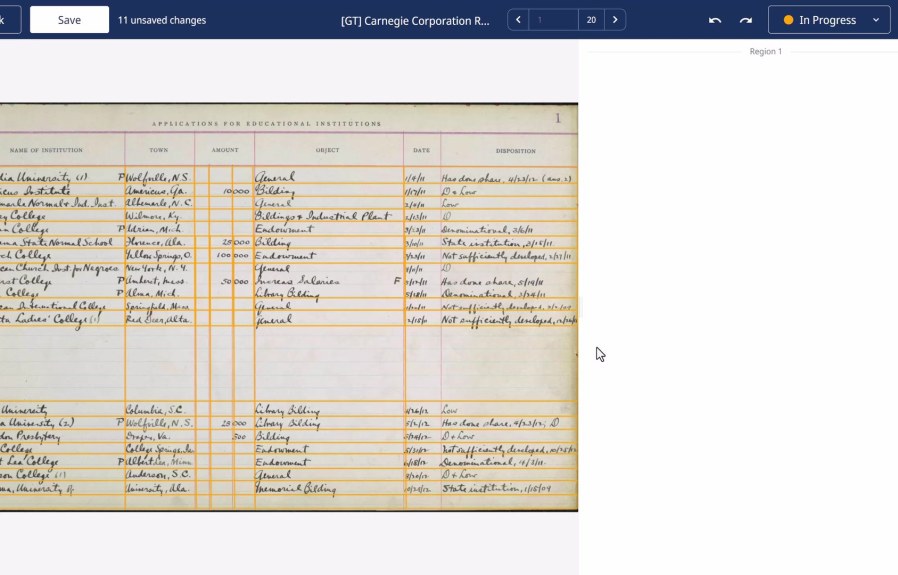 k Save 11 unsaved changes [GT] Carnegie Corporation R... 1 20 In Progress
Region 1
1
APPLICATIONS FOR EDUCATIONAL INSTITUTIONS
NAME OF INSTITUTION TOWN AMOUNT OBJECT DATE DISPOSITION
dia University (1) P Wolfville, N.S. General 1/9/11 Has done share, 4/23/12 (ans. 2)
icus Institute Americus, Ga. 10 000 Bilding 1/17/11 D & Low
marle Normal & Ind. Inst. Albemarle, N.C. General 2/4/11 Low
ry College Wilmore, Ky. Bildings & Industrial Plant 2/13/11 D
n College P Adrian, Mich. Endowment Denominational, 3/6/11
ama State Normal School Florence, Ala. 25 000 Bilding State institution, 3/15/11
ch College Yellow Springs, O. 100 000 Endowment Not sufficiently developed,
can Church Inst. for Negroes New York, N.Y. General D
rst College P Amherst, Mass. 50 000 Increas Salaries F Has done share, 5/19/11
College P Alma, Mich. Library Bilding Denominational,
can International College Springfield, Mass General Not sufficiently developed,
ta Ladies' College (1) Red Deer, Alta. General 2/15/11 Not sufficiently developed,
University Columbia, S.C. Library Bilding Low
a University (2) P Wolfville, N.S. 25 000 Library Bilding 5/2/12 Has done share, 4/23/12, D
don Presbytery Draper, Va. 500 Bilding D & Low
College College Springs, Ia. Endowment 5/31/12 Not sufficiently developed, 10/25/12
t Lea College P Albert Lea, Minn Endowment Denominational, 10/3/11.
son College (1) Anderson, S.C. General D & Low
ma, University of University, Ala. Memorial Bilding State institution, 1/15/09